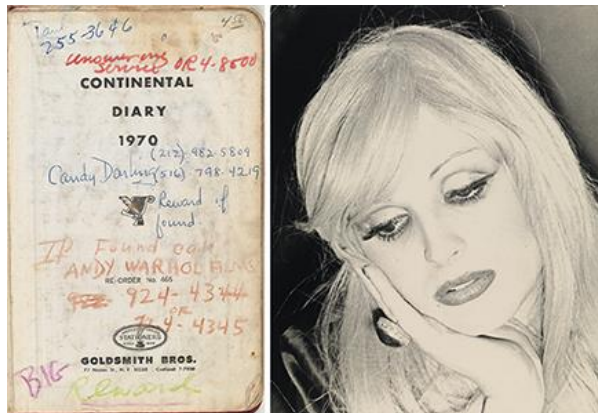 4 50
255-3646
answering
service OR4-8500
CONTINENTAL
DIARY
1970
(212) 982-5809
Candy Darling (516) 798-4219
Reward if
found.
If Found call
ANDY WARHOL FILMS
RE-ORDER No. 465
924-4344
OR
924-4345
STATIONERS
GOLDSMITH BROS.
BIG
Reward